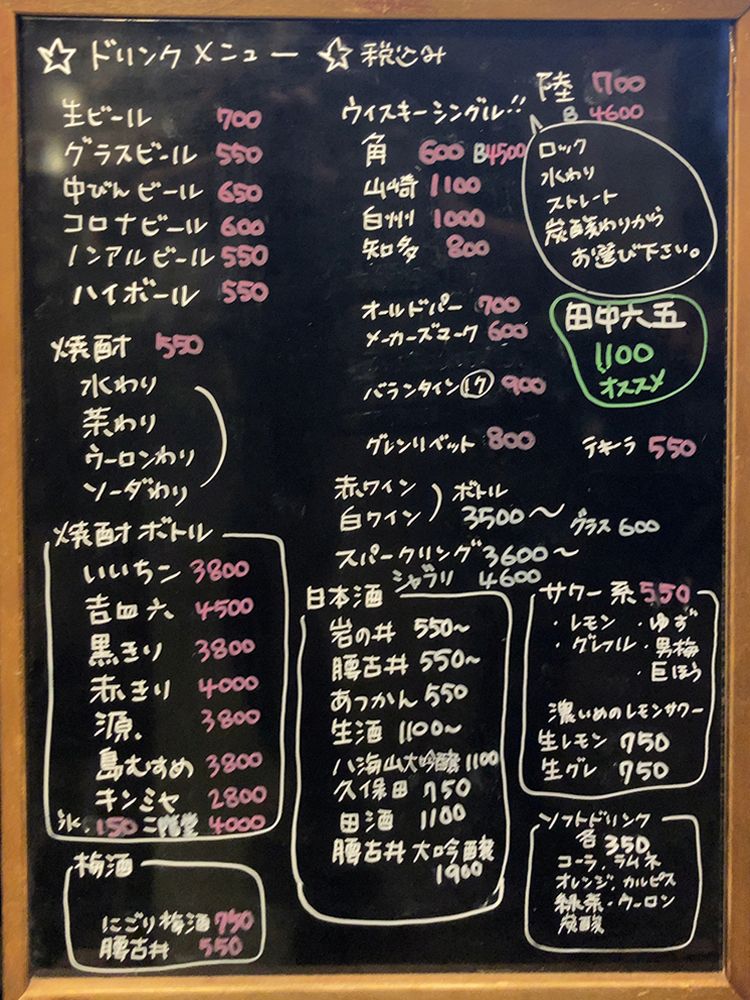 ☆ ドリンクメニュー ☆ 税込み
生ビール 700
グラスビール 550
中びんビール 650
コロナビール 600
ノンアルビール 550
ハイボール 550
焼酎 550
水わり
茶わり
ウーロンわり
ソーダわり
焼酎ボトル
いいちこ 3800
吉四六 4500
黒きり 3800
赤きり 4000
源 3800
島むすめ 3800
キンミヤ 2800
氷 150 二階堂 4000
梅酒
にごり梅酒 750
腰古井 550
ウイスキーシングル!!
角 600 B4500
山崎 1100
白州 1000
知多 800
陸 700
B 4600
ロック
水わり
ストレート
炭酸わりから
お選び下さい。
オールドパー 700
メーカーズマーク 600
バランタイン17 900
グレンリベット 800
田中六五
1100
オススメ
テキーラ 550
赤ワイン
白ワイン
ボトル
3500〜
グラス 600
スパークリング 3600〜
シャブリ 4600
日本酒
岩の井 550〜
腰古井 550〜
あつかん 550
生酒 1100〜
八海山大吟醸 1100
久保田 750
田酒 1100
腰古井 大吟醸
1900
サワー系 550
・レモン ・ゆず
・グレフル ・男梅
・巨ほう
濃いめのレモンサワー
生レモン 750
生グレ 750
ソフトドリンク
各 350
コーラ、ラムネ
オレンジ、カルピス
緑茶・ウーロン
炭酸